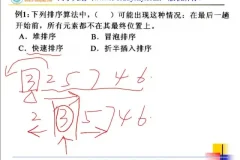 例1:下列排序算法中,（ ）可能出现这种情况：在最后一趟
开始前，所有元素都不在其最终位置上。
A、堆排序 B、冒泡排序
C、快速排序 D、折半插入排序
3 2 5 7 4 6
2 3 5 7 4 6